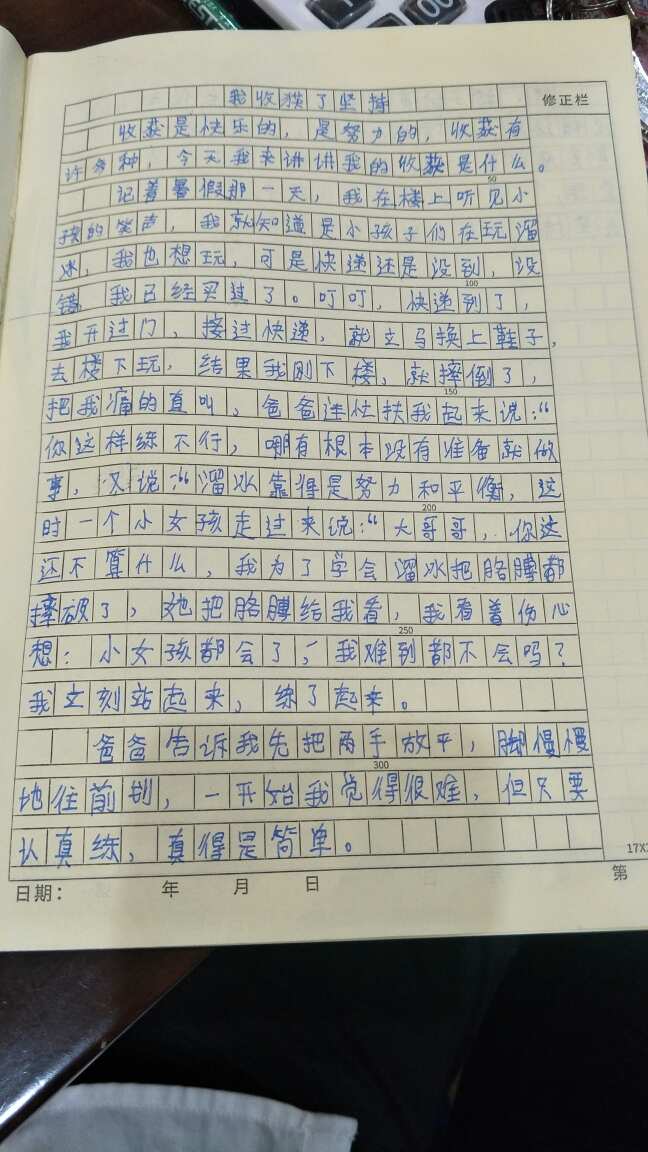 我收获了坚持
修正栏
收获是快乐的，是努力的，收获有
许多种，今天我来讲讲我的收获是什么。
50
记着暑假那一天，我在楼上听见小
孩的笑声，我就知道是小孩子们在玩溜
冰，我也想玩，可是快递还是没到，没
100
错，我已经买过了。叮叮，快递到了，
我开过门，接过快递，就立马换上鞋子，
去楼下玩，结果我刚下楼，就摔倒了，
150
把我痛的直叫，爸爸连忙扶我起来说：“
你这样练不行，哪有根本没有准备就做
事，又说：“溜冰靠得是努力和平衡，这
200
时一个小女孩走过来说：“大哥哥，你这
还不算什么，我为了学会溜冰把胳膊都
摔破了，她把胳膊给我看，我看着伤心
250
想：小女孩都会了，我难到都不会吗？
我立刻站起来，练了起来。
爸爸告诉我先把两手放平，脚慢慢
300
地往前划，一开始我觉得很难，但只要
认真练，真得是简单。
17X
日期： 年 月 日 第